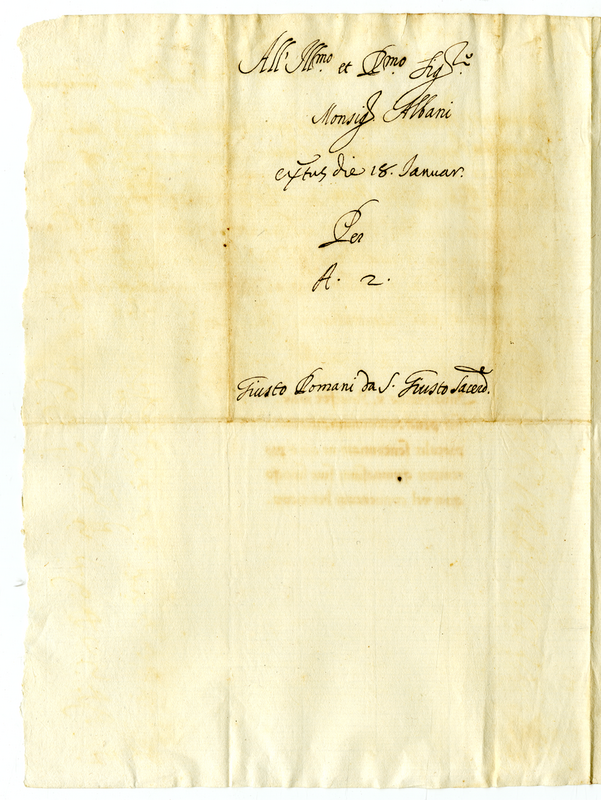 All' Ill.mo et R.mo Sig.re
Monsig.r Albani
die 18. Januar.
Per
A. 2.
Giusto Romani da S. Giusto Sacerd.e